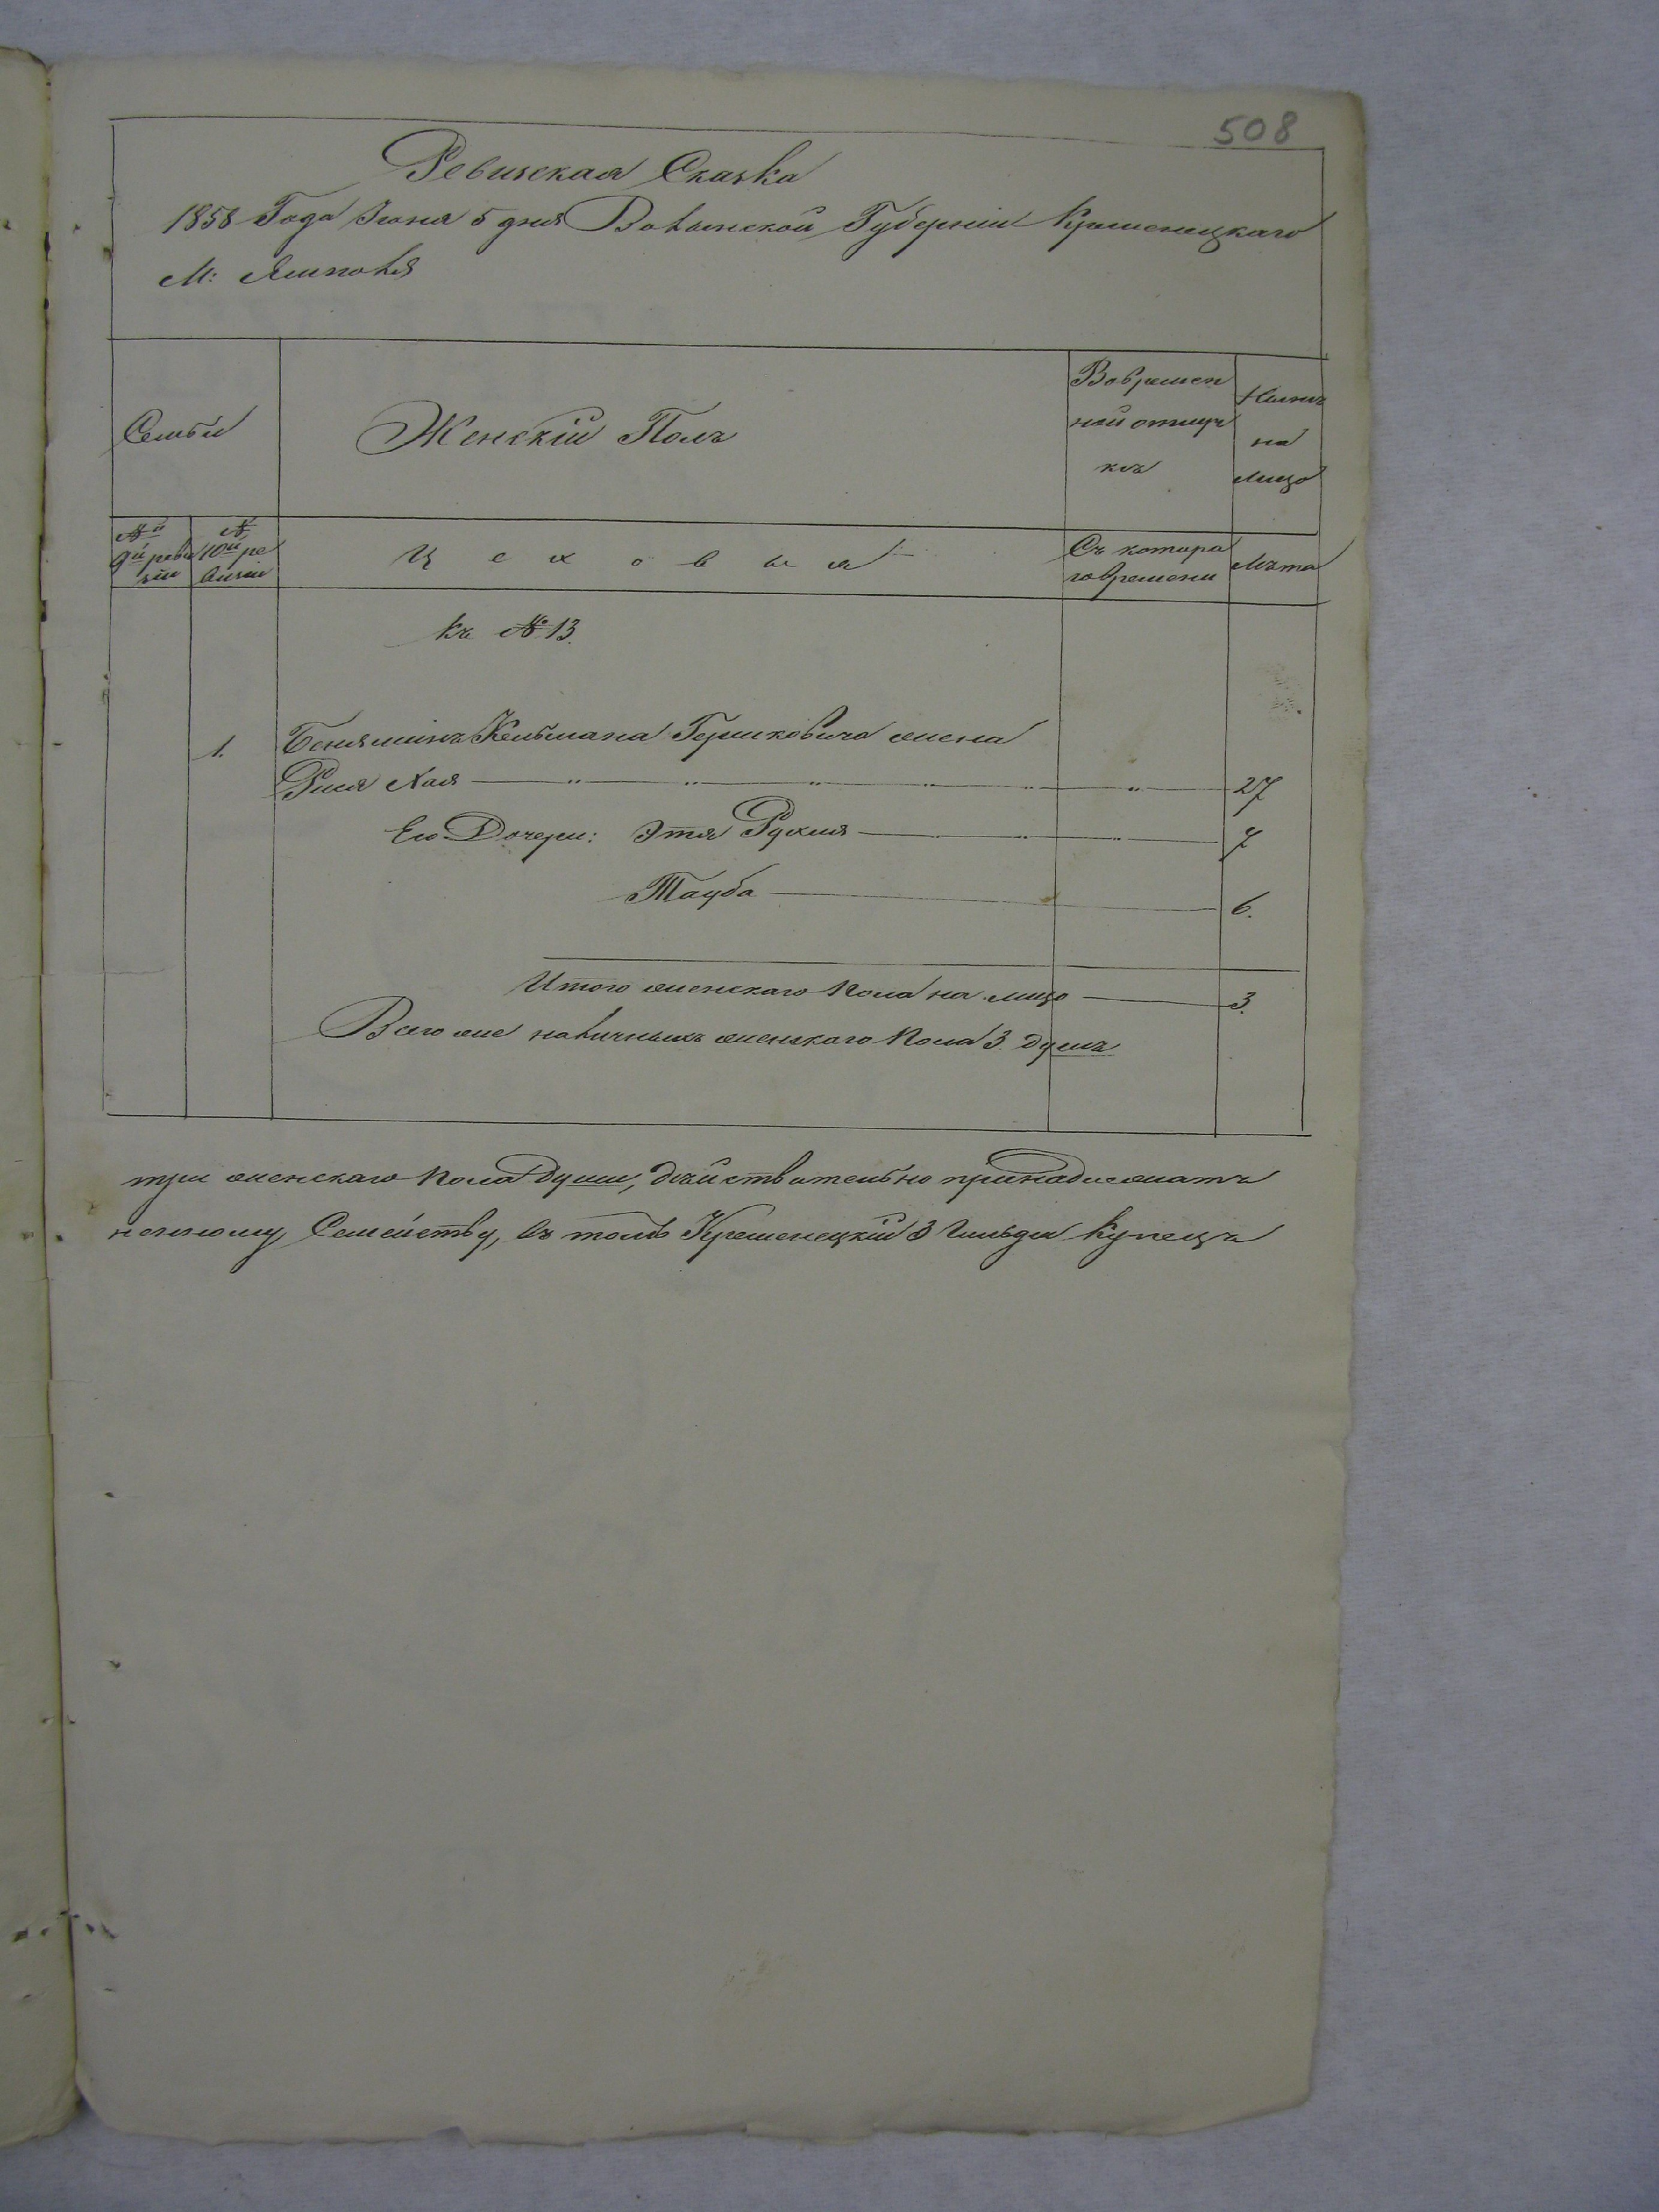 508
Ревизская Сказка
1858 Года Июня 5 дня Волынской Губерніи Кременецкаго
М: Ямполя
Семьи
Женскій Полъ
Вовремен
ной отлуч
къ
Нынѣ
на
лицо
№й
9й реви
зіи
№
10й ре
визіи
Цеховыя
Съ котора
го времени
Лѣта
Къ № 13.
1.
Беняминъ Кельмана Гершковича жена
Рися Хая " " " " " " 27
Его Дочери: Этя Рухля " " 7
Тауба 6.
Итого женскаго пола на лицо 3.
Всего же наличныхъ женскаго пола 3. душъ
три женскаго пола души, дѣйствительно принадлежатъ
Семейству, въ томъ Кременецкій 3 Гильдіи Купецъ